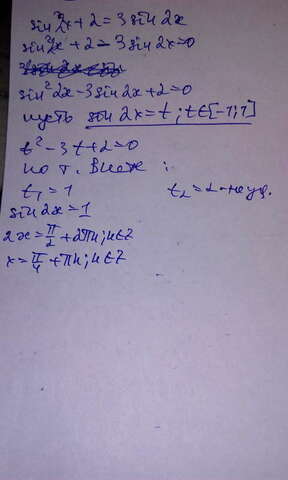 sin²2x+2=3sin2x
sin²2x+2-3sin2x=0
sin²2x-3sin2x+2=0
пусть sin2x=t; t∈[-1;1]
t²-3t+2=0
по т. Виета:
t₁=1 t₂=2-не уд.
sin2x=1
2x=π/2+2πn; n∈Z
x=π/4+πn; n∈Z